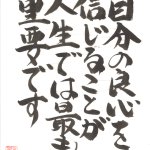 自分の良心を
信じることが
人生では最も
重要です